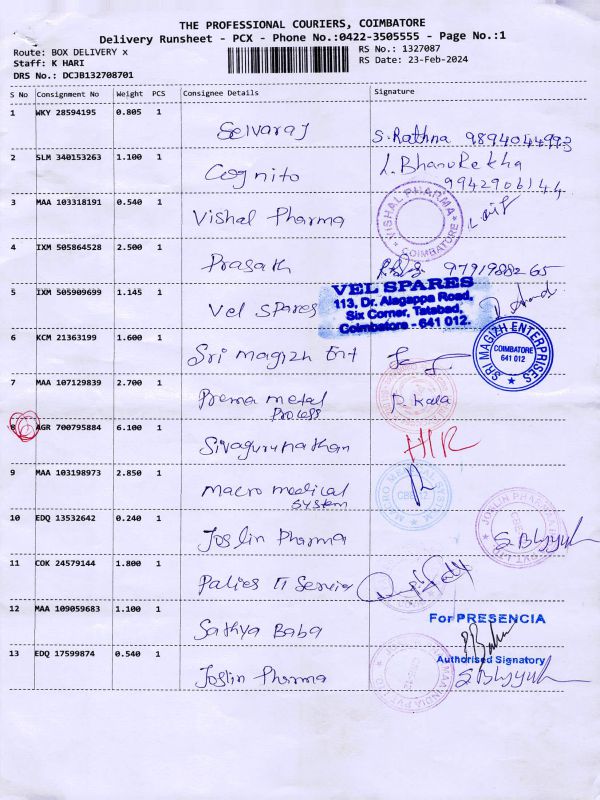 THE PROFESSIONAL COURIERS, COIMBATORE
Delivery Runsheet - PCX - Phone No.:0422-3505555 - Page No.:1
Route: BOX DELIVERY x
RS No.: 1327087
Staff: K HARI
RS Date: 23-Feb-2024
DRS No.: DCJB132708701
S No Consignment No Weight PCS Consignee Details Signature
1 WKY 28594195 0.805 1
Selvaraj S.Rathna 9894044993
2 SLM 340153263 1.100 1
Cognito L.BhanuRekha
9942906144
3 MAA 103318191 0.540 1
Vishal Pharma VISHAL PHARMA COIMBATORE
4 IXM 505864528 2.500 1
Prasath 9791988265
5 IXM 505909699 1.145 1
Vel Spares
VEL SPARES
113, Dr. Alagappa Road,
Six Corner, Tatabad,
Coimbatore - 641 012.
6 KCM 21363199 1.600 1
Sri magizh Ent
SRI MAGIZH ENTERPRISES
COIMBATORE
641 012
7 MAA 107129839 2.700 1
Prema metal P Kala
Process
8 AGR 700795884 6.100 1
Sivagurunathan
9 MAA 103198973 2.850 1
macro medical
System
MACRO MEDICAL SYSTEM
10 EDQ 13532642 0.240 1
Joslin Pharma
11 COK 24579144 1.800 1
12 MAA 109059683 1.100 1
Sathya Baba
For PRESENCIA
Authorised Signatory
13 EDQ 17599874 0.540 1
Joslin Pharma